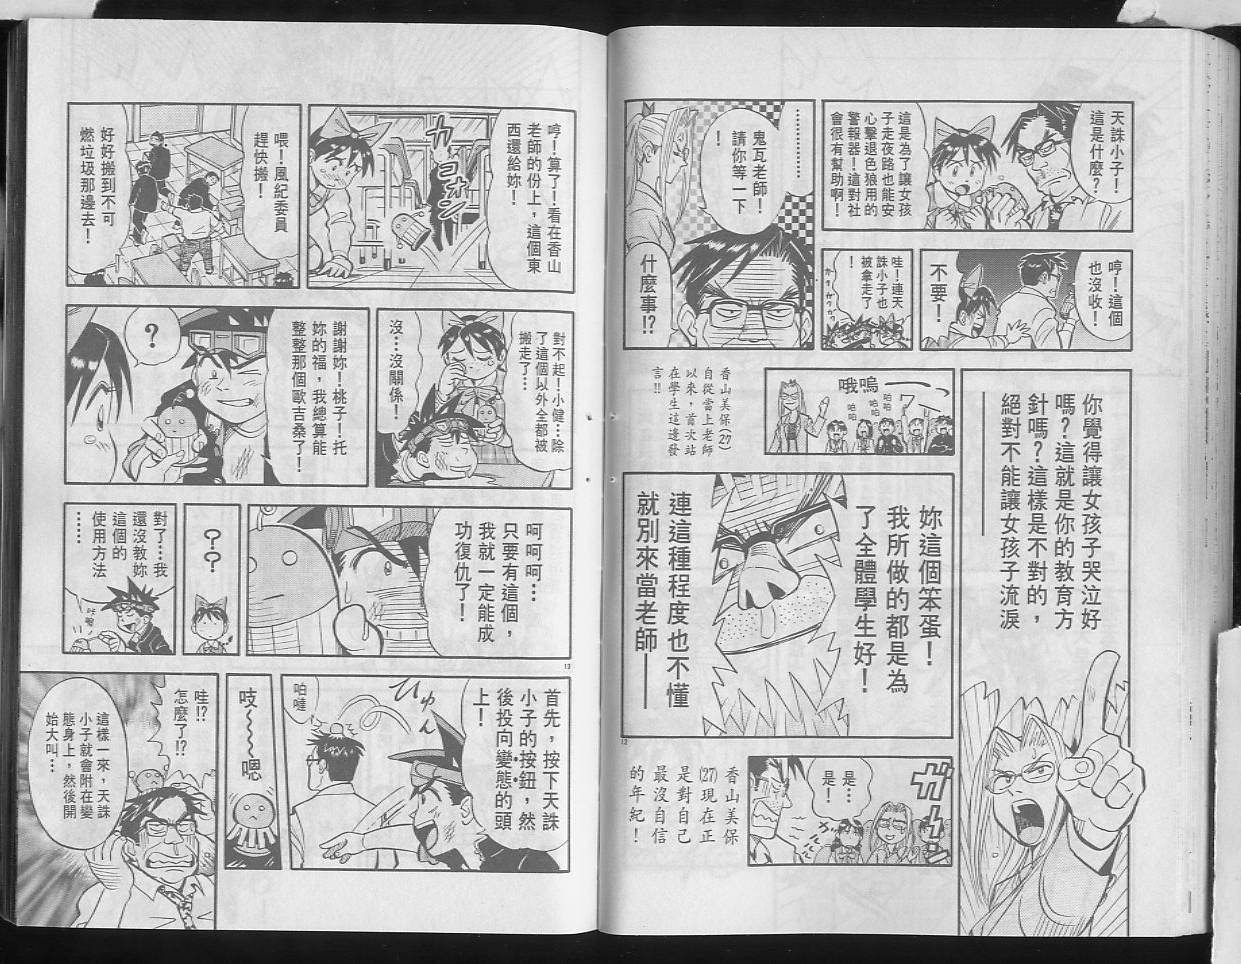 天誅小子！
這是什麼？
這是為了讓女孩
子走夜路也能安
心擊退色狼用的
警報器！這對社
會很有幫助啊！
…………
鬼瓦老師！
請你等一下
！
什麼事!?
哼！這個
也沒收！
不要！
哇！連天
誅小子也
被拿走了
！
你覺得讓女孩子哭泣好
嗎？這就是你的教育方
針嗎？這樣是不對的，
絕對不能讓女孩子流淚
——
哦嗚——
啪
啪
啪
啪
啪
啪
香山美保(27)
自從當上老師
以來，首次站
在學生這邊發
言!!
妳這個笨蛋！
我所做的都是為
了全體學生好！
連這種程度也不懂
就別來當老師——
12
ガーーン
是…
是！
香山美保
(27)現在正
是對自己
最沒自信
的年紀！
哼！算了！看在香山
老師的份上，這個東
西還給妳！
カ・コォン
喂！風紀委員
趕快搬！
好好搬到不可
燃垃圾那邊去！
對不起！小健…除
了這個以外全都被
搬走了…
沒…沒關係！
謝謝妳！桃子！托
妳的福，我總算能
整整那個歐吉桑了！
？
呵呵呵…
只要有這個，
我就一定能成
功復仇了！
？？
對了…我
還沒教妳
這個的
使用方法
……
13
首先，按下天誅
小子的按鈕，然
後投向變態的頭
上！
ひゅん
啪噠
吱～～～嗯
哇!?
怎麼了!?
這樣一來，天誅
小子就會附在變
態身上，然後開
始大叫…